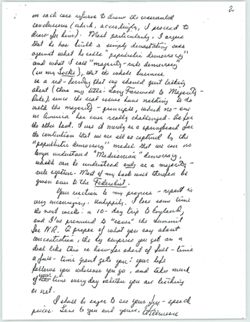 2.
in each case refuses to draw the warranted
conclusions (which, accordingly, I proceed to
draw for him). Most particularly, I argue
that he has built a simply devastating case
against what he calls "populistic democracy"
and what I call "majority-rule democracy"
(in my Locke), that the whole business
is a red-herring that we should quit talking
about (thus my title: Long Farewell to Majority-
Rule), since the real issues have nothing to do
with the majority-principle, which no-one
in America has ever really challenged. So for
the other book. I use it merely as a springboard for
the contention that we are all so captured by the
"populistic democracy" model that we can no
longer understand "Madisonian" democracy,
which can be understood only as a majority-
rule system. Most of my book will therefore be
given over to the Federalist.
Your caution to my progress-report is
very necessary, unhappily. I lose some time
the next week: a 10-day trip to England,
and I've promised to "cover" the Summit
for N.R. A propos of what you say about
concentration, the big surprise you get on a
deal like this is how far short of full-time
a full-time grant gets you: your life
follows you wherever you go, and takes much
of time every day whether you are teaching
or not.
I shall be eager to see your
pieces. Love to you and yours.
Willmoore